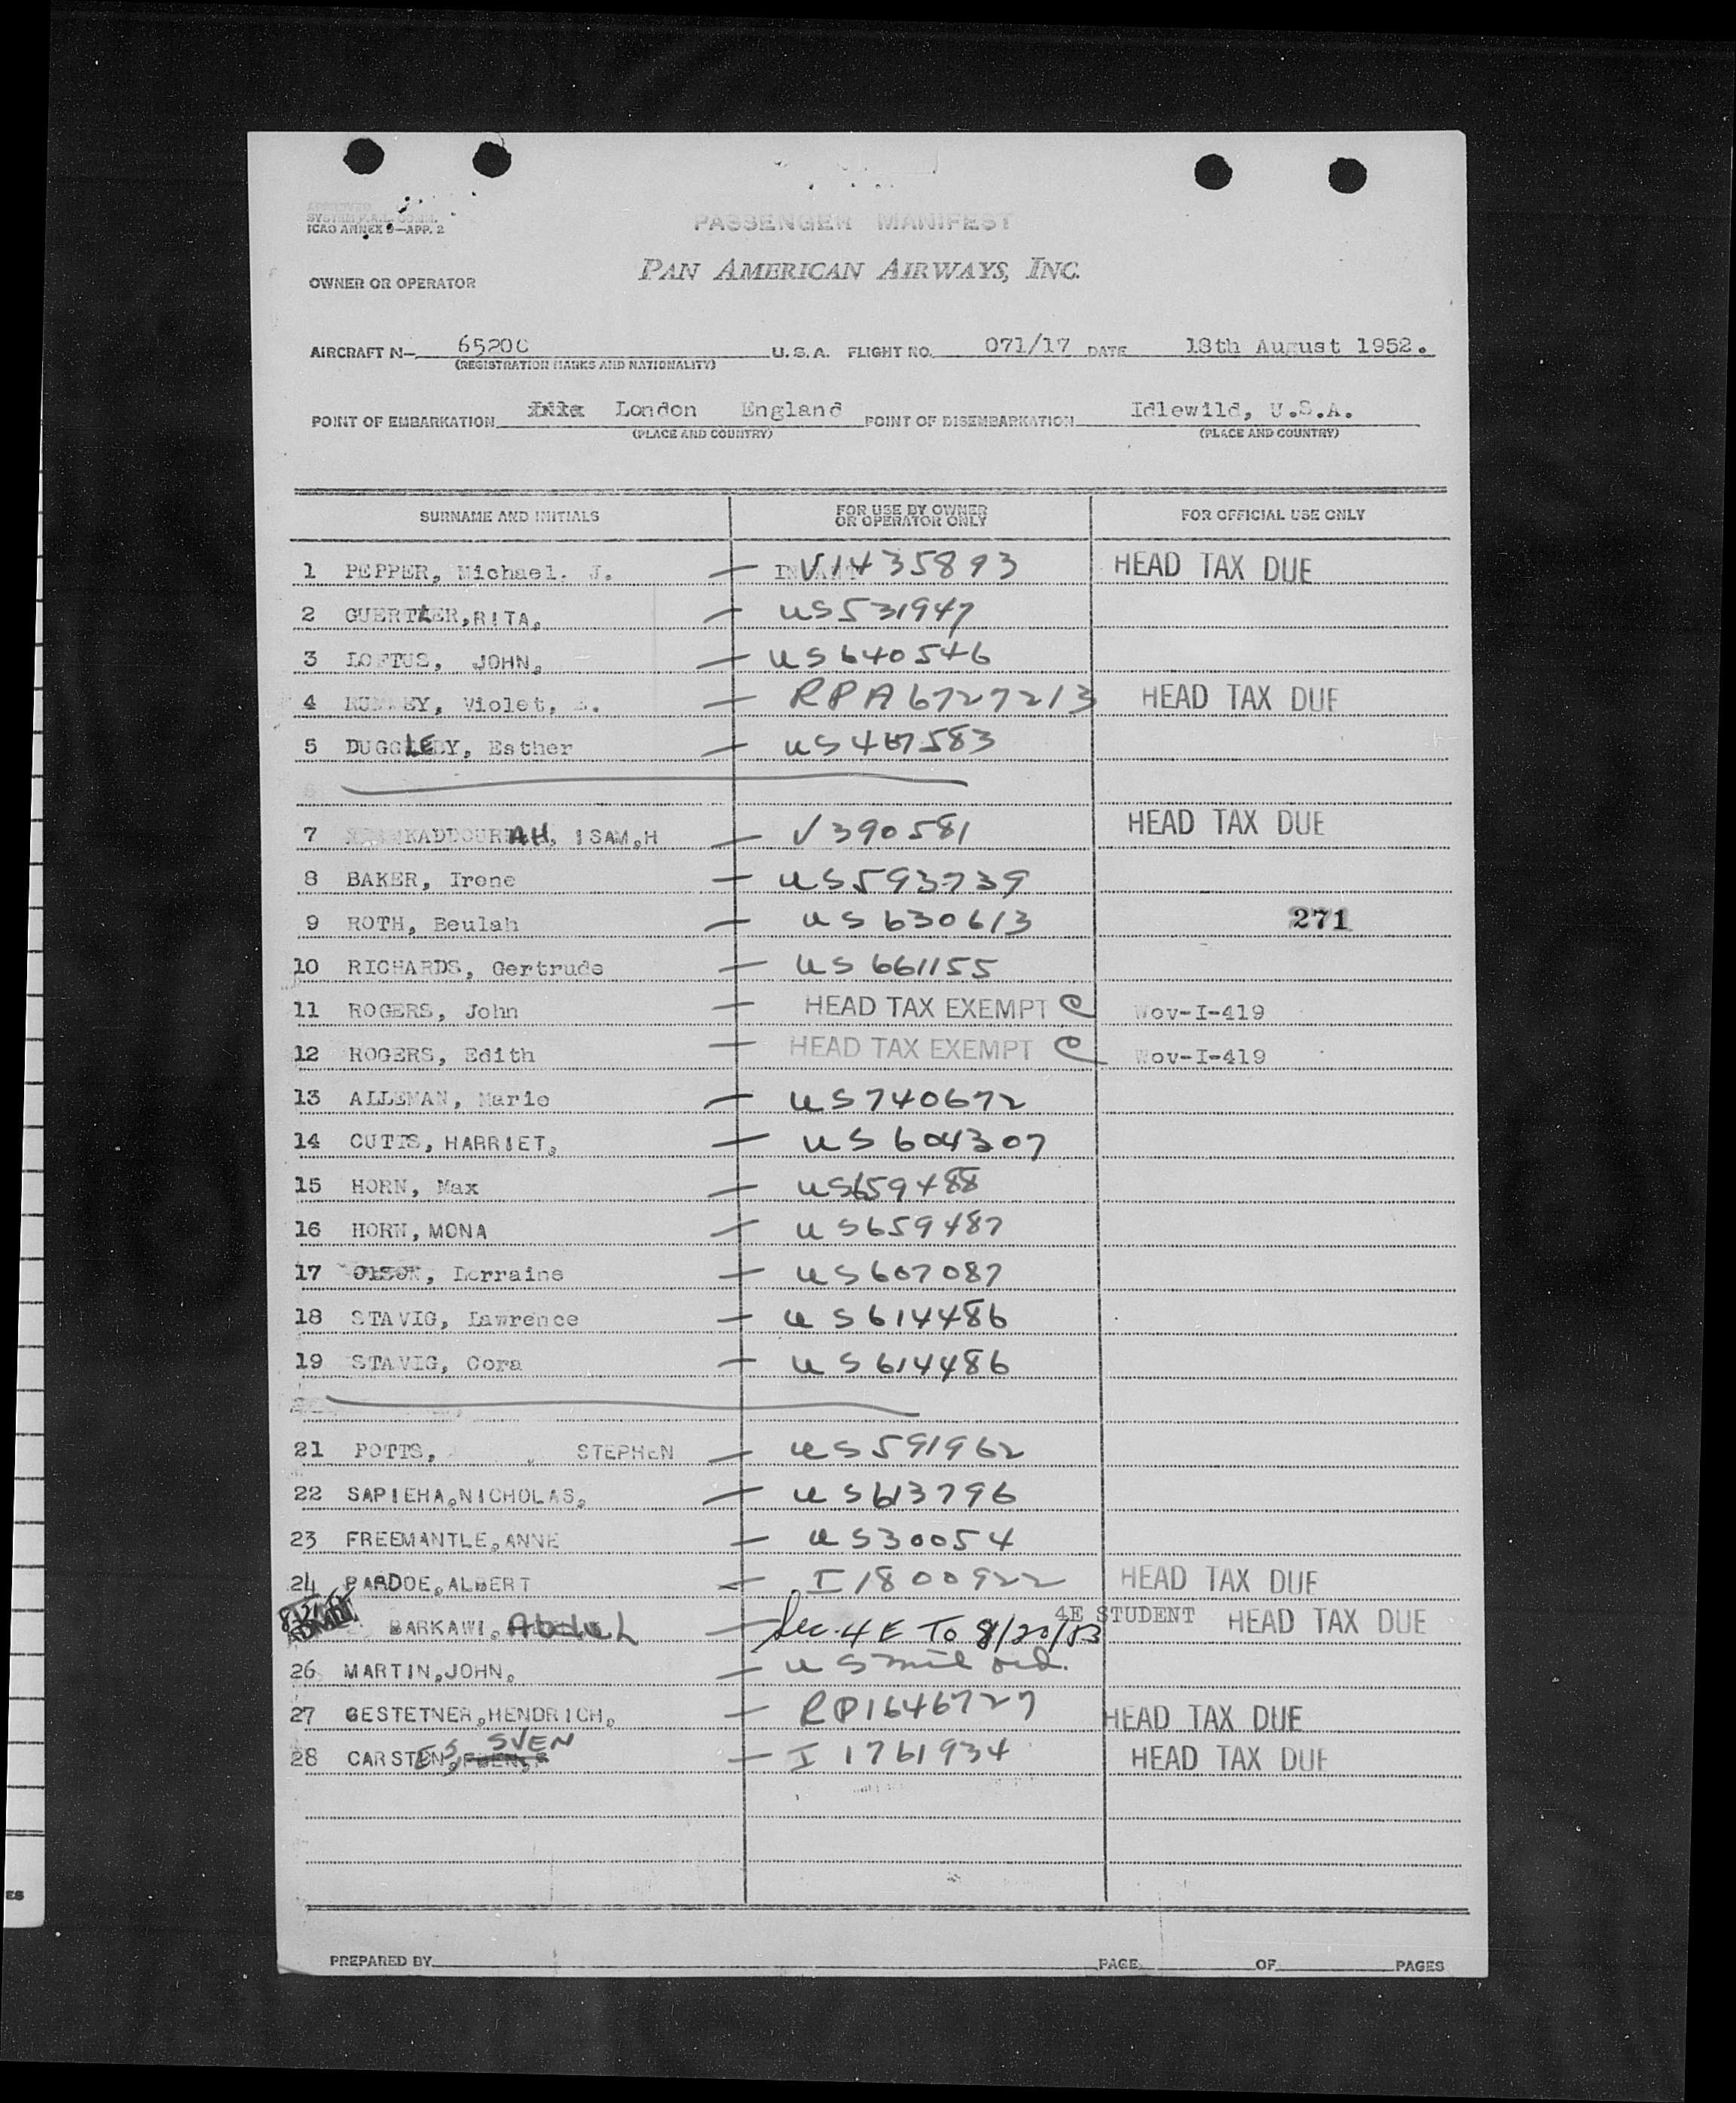 APPROVED
SYSTEM P.A.L. COMM.
ICAO ANNEX 9—APP. 2
PASSENGER MANIFEST
OWNER OR OPERATOR PAN AMERICAN AIRWAYS, INC.
AIRCRAFT N— 6520C U.S.A. FLIGHT NO. 071/17 DATE 18th August 1952.
(REGISTRATION MARKS AND NATIONALITY)
POINT OF EMBARKATION London England POINT OF DISEMBARKATION Idlewild, U.S.A.
(PLACE AND COUNTRY) (PLACE AND COUNTRY)
SURNAME AND INITIALS FOR USE BY OWNER OR OPERATOR ONLY FOR OFFICIAL USE ONLY
1 PEPPER, Michael. J. — V1435893 HEAD TAX DUE
2 GUERTLER, RITA, — US531947
3 LOFTUS, JOHN, — US640546
4 Violet, — RPA6727213 HEAD TAX DUE
5 DUGGLEBY, Esther — US 467583
6
7 KADDOURAH, ISAM,H — V390581 HEAD TAX DUE
8 BAKER, Irene — US593739
9 ROTH, Beulah — US 630613 271
10 RICHARDS, Gertrude — US 661155
11 ROGERS, John — HEAD TAX EXEMPT Wov-I-419
12 ROGERS, Edith — HEAD TAX EXEMPT Wov-I-419
13 ALLEMAN, Marie — US740672
14 CUTTS, HARRIET, — US 604307
15 HORN, Max — US659488
16 HORN, MONA — US659487
17 OLSON, Lorraine — US607087
18 STAVIG, Lawrence — US614486
19 STAVIG, Cora — US614486
21 POTTS, STEPHEN — US591962
22 SAPIEHA, NICHOLAS, — US613796
23 FREEMANTLE, ANNE — US30054
24 PARDOE, ALBERT — I1800922 HEAD TAX DUE
BARKAWI, Abdul — Sec. 4E TO 8/20/53 4E STUDENT HEAD TAX DUE
26 MARTIN, JOHN, — US mil ord.
27 GESTETNER, HENDRICH, — RP1646727 HEAD TAX DUE
SVEN
28 CARSTENS, — I 1761934 HEAD TAX DUE
PREPARED BY PAGE OF PAGES
ES